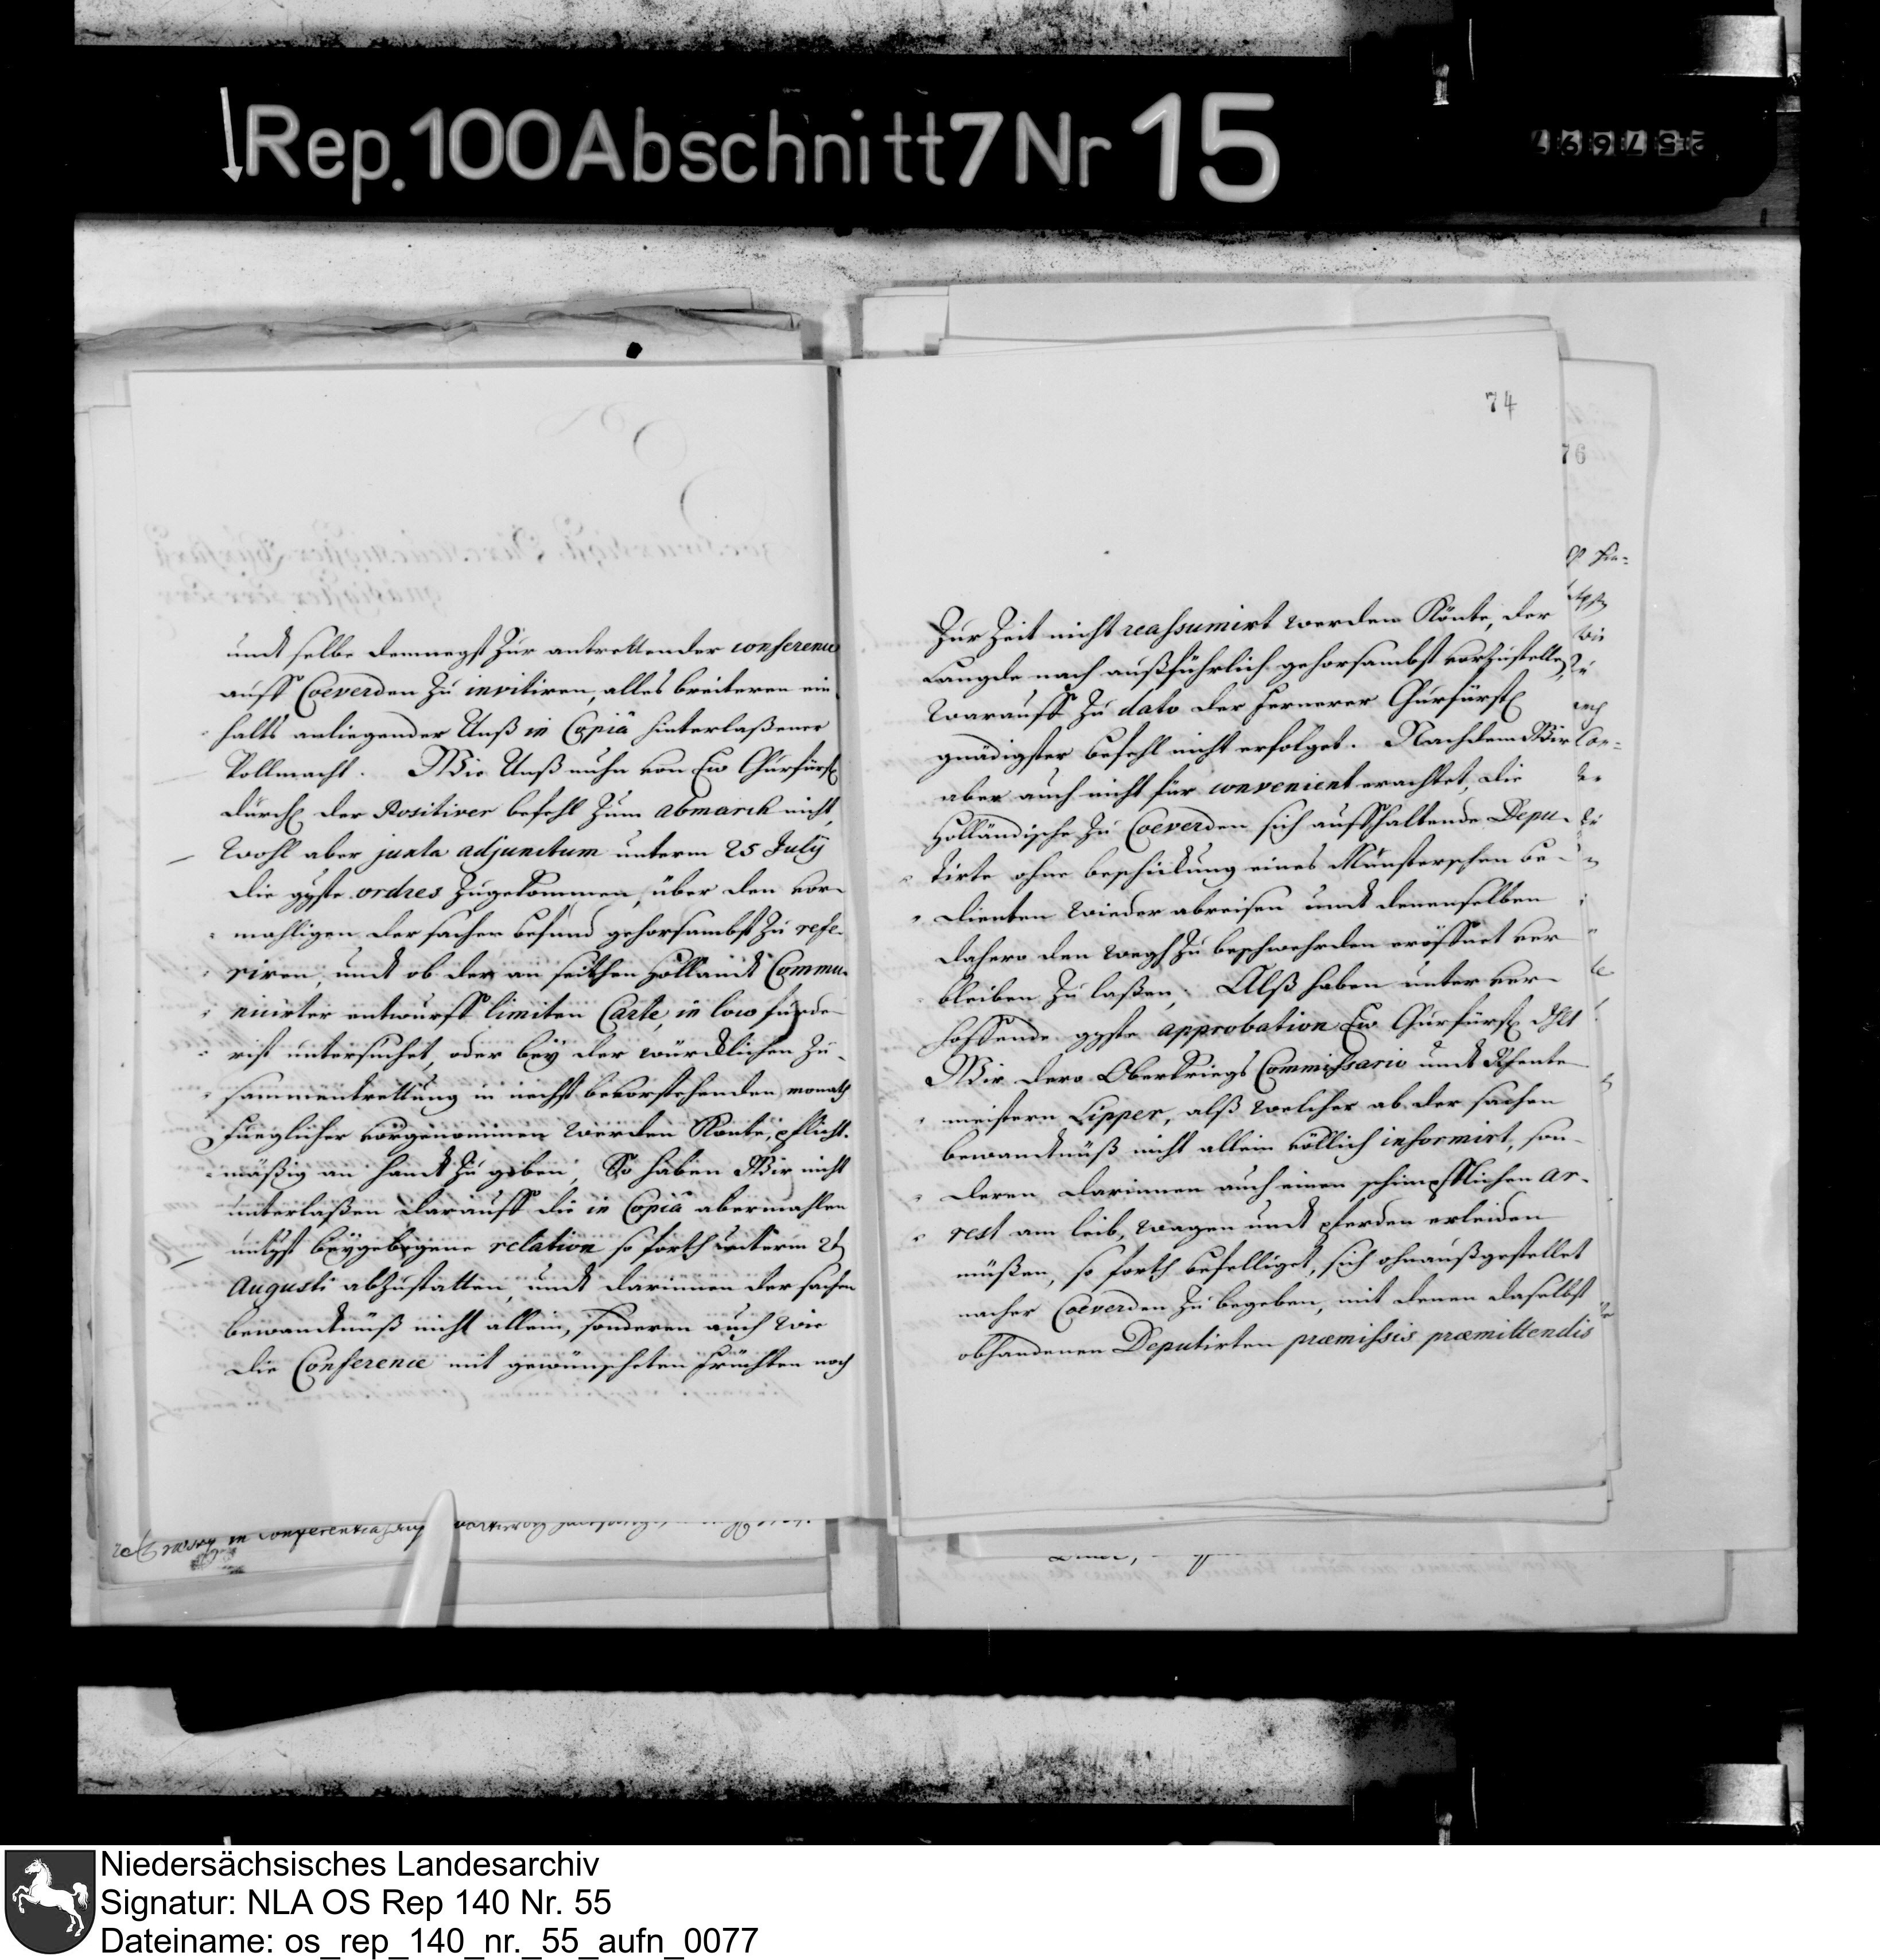 Rep. 100 Abschnitt 7 Nr 15
undt selbe demnegst zur antrettender conference
auff Coeverden zu invitiren, alles breiteren ein
halts anliegender Unß in Copiâ hinterlaßener
Vollmacht. Wie Unß nuhn von Ew Churfürstl
Durchl der Positiver befehl zum abmarch nicht,
wohl aber juxta adjunctum unterm 25 July
die ggste ordres zugekommen, über den vor-
mahligen der sachen befund gehorsambst zu refe-
riren, undt ob der an seithen Hollandt Commu-
nicirter entwurff limiten Carte, in loco
untersuchet, oder bey der würcklichen zu-
sammentrettung in nechst bevorstehenden monath
fueglicher vorgenommen werden könte, pflicht-
mäßig an handt zu geben, So haben Wir nicht
unterlaßen darauff die in Copiâ abermahlen
beygebogene relation so forth unterm
Augusti abzustatten, undt darinnen der sachen
bewandtnüß nicht allein, sonderen auch wie
die Conference mit gewünscheten früchten noch
74
Zur Zeit nicht reassumirt werden könte, der
Langde nach außführlich gehorsambst vorzustellen,
warauff zu dato der fernerer Churfürstl
gnädigster befehl nicht erfolget. Nachdem Wir
aber auch nicht für convenient erachtet, die
Holländische zu Coeverden sich auffhaltende Depu-
tirte ohne beschickung eines Münsterschen be-
dienten wieder abreisen undt denenselben
dahero den wegh zu beschwehrden eröffnet ver
bleiben zu laßen; Alß haben unter ver-
hoffende ggste approbation Ew Churfürstl Dhlt
Wir dero Oberkriegs Commissario undt Rhente
meistern Lipper, alß welcher ab der sachen
bewandtnüß nicht allein völlich informirt, son-
deren darinnen auch einen schimpfflichen ar-
rest am leib, wagen undt pferden erleiden
müßen, so forth befelliget, sich ohnaußgestellet
nacher Coeverden zu begeben, mit denen daselbst
obhandenen Deputirten præmissis præmittendis
76
Niedersächsisches Landesarchiv
Signatur: NLA OS Rep 140 Nr. 55
Dateiname: os_rep_140_nr._55_aufn_0077